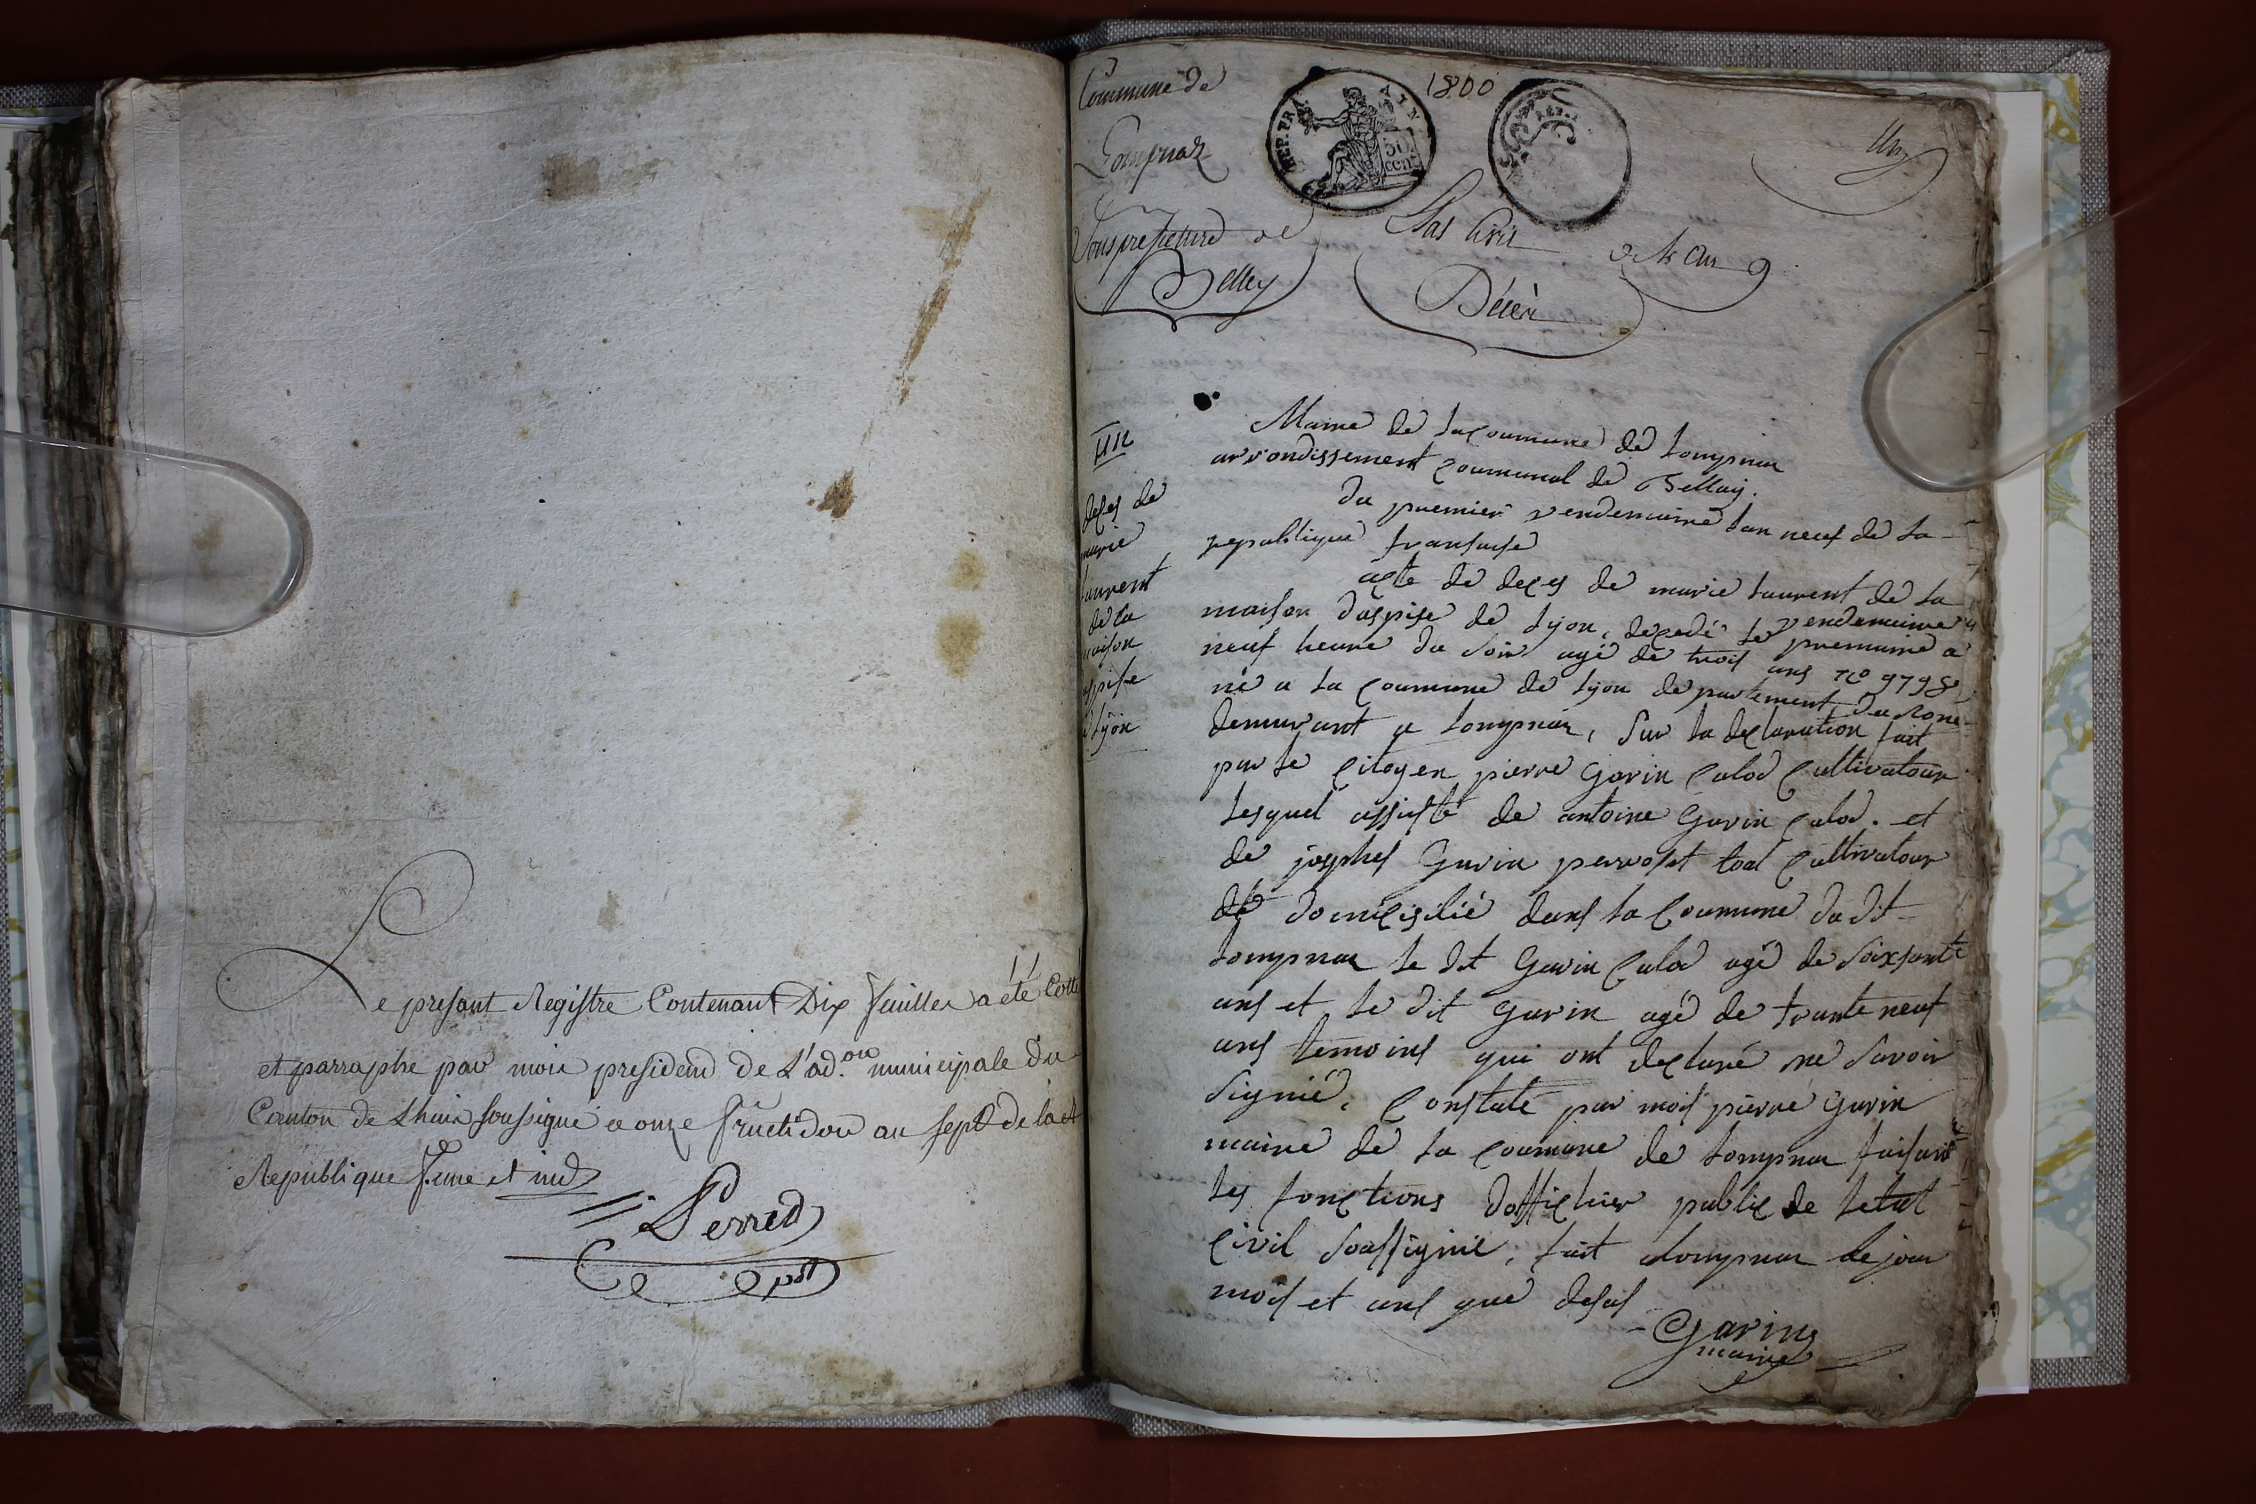 Le presant Registre Contenant Dix feuilles a été Cotté
et parraphe par moi president de L'ad.on municipale Du
Canton de Lhuis soussigne ce onze fructidor an sept de la
Republique f. une et ind
Perret
pdt
Commune de
Lompnaz
Sousprefecture de
Belley
REP. FRA.
AIN
1800
Etat Civil
de l'an 9
Décès
Un
Maire de la coumune de lompnaz
arrondissement coumunal de Belley.
du premier vendemaire lan neuf de la
republique fransaise
acte de deces de marie laurent de la
maison daspise de lyon, decedé le premaire vendemaire a
neuf heure du soir agé de trois ans no 9798
né a la coumune de lyon departement du rone
demurant a lompnaz, sur la declaration fait
par le citoyen pierre Garin calod cultivatour
lesquel assisté de antoine Garin calod. et
de josephs Garin perroset toul cultivatour
domicisilié dans la coumune du dit
lompnaz le dit Garin calod agé de soixsante
ans et le dit garin agé de trante neuf
ans temoins qui ont declaré ne savoir
signié, constaté par mois pierre garin
maire de la coumune de lompnaz faisant
les fonctions doffichier public de letat
civil soussignié, fait alompnaz le jour
mois et ans que desus
Garin
maire
un
deces de
marie
laurent
de la
maison
aspise
d lyon